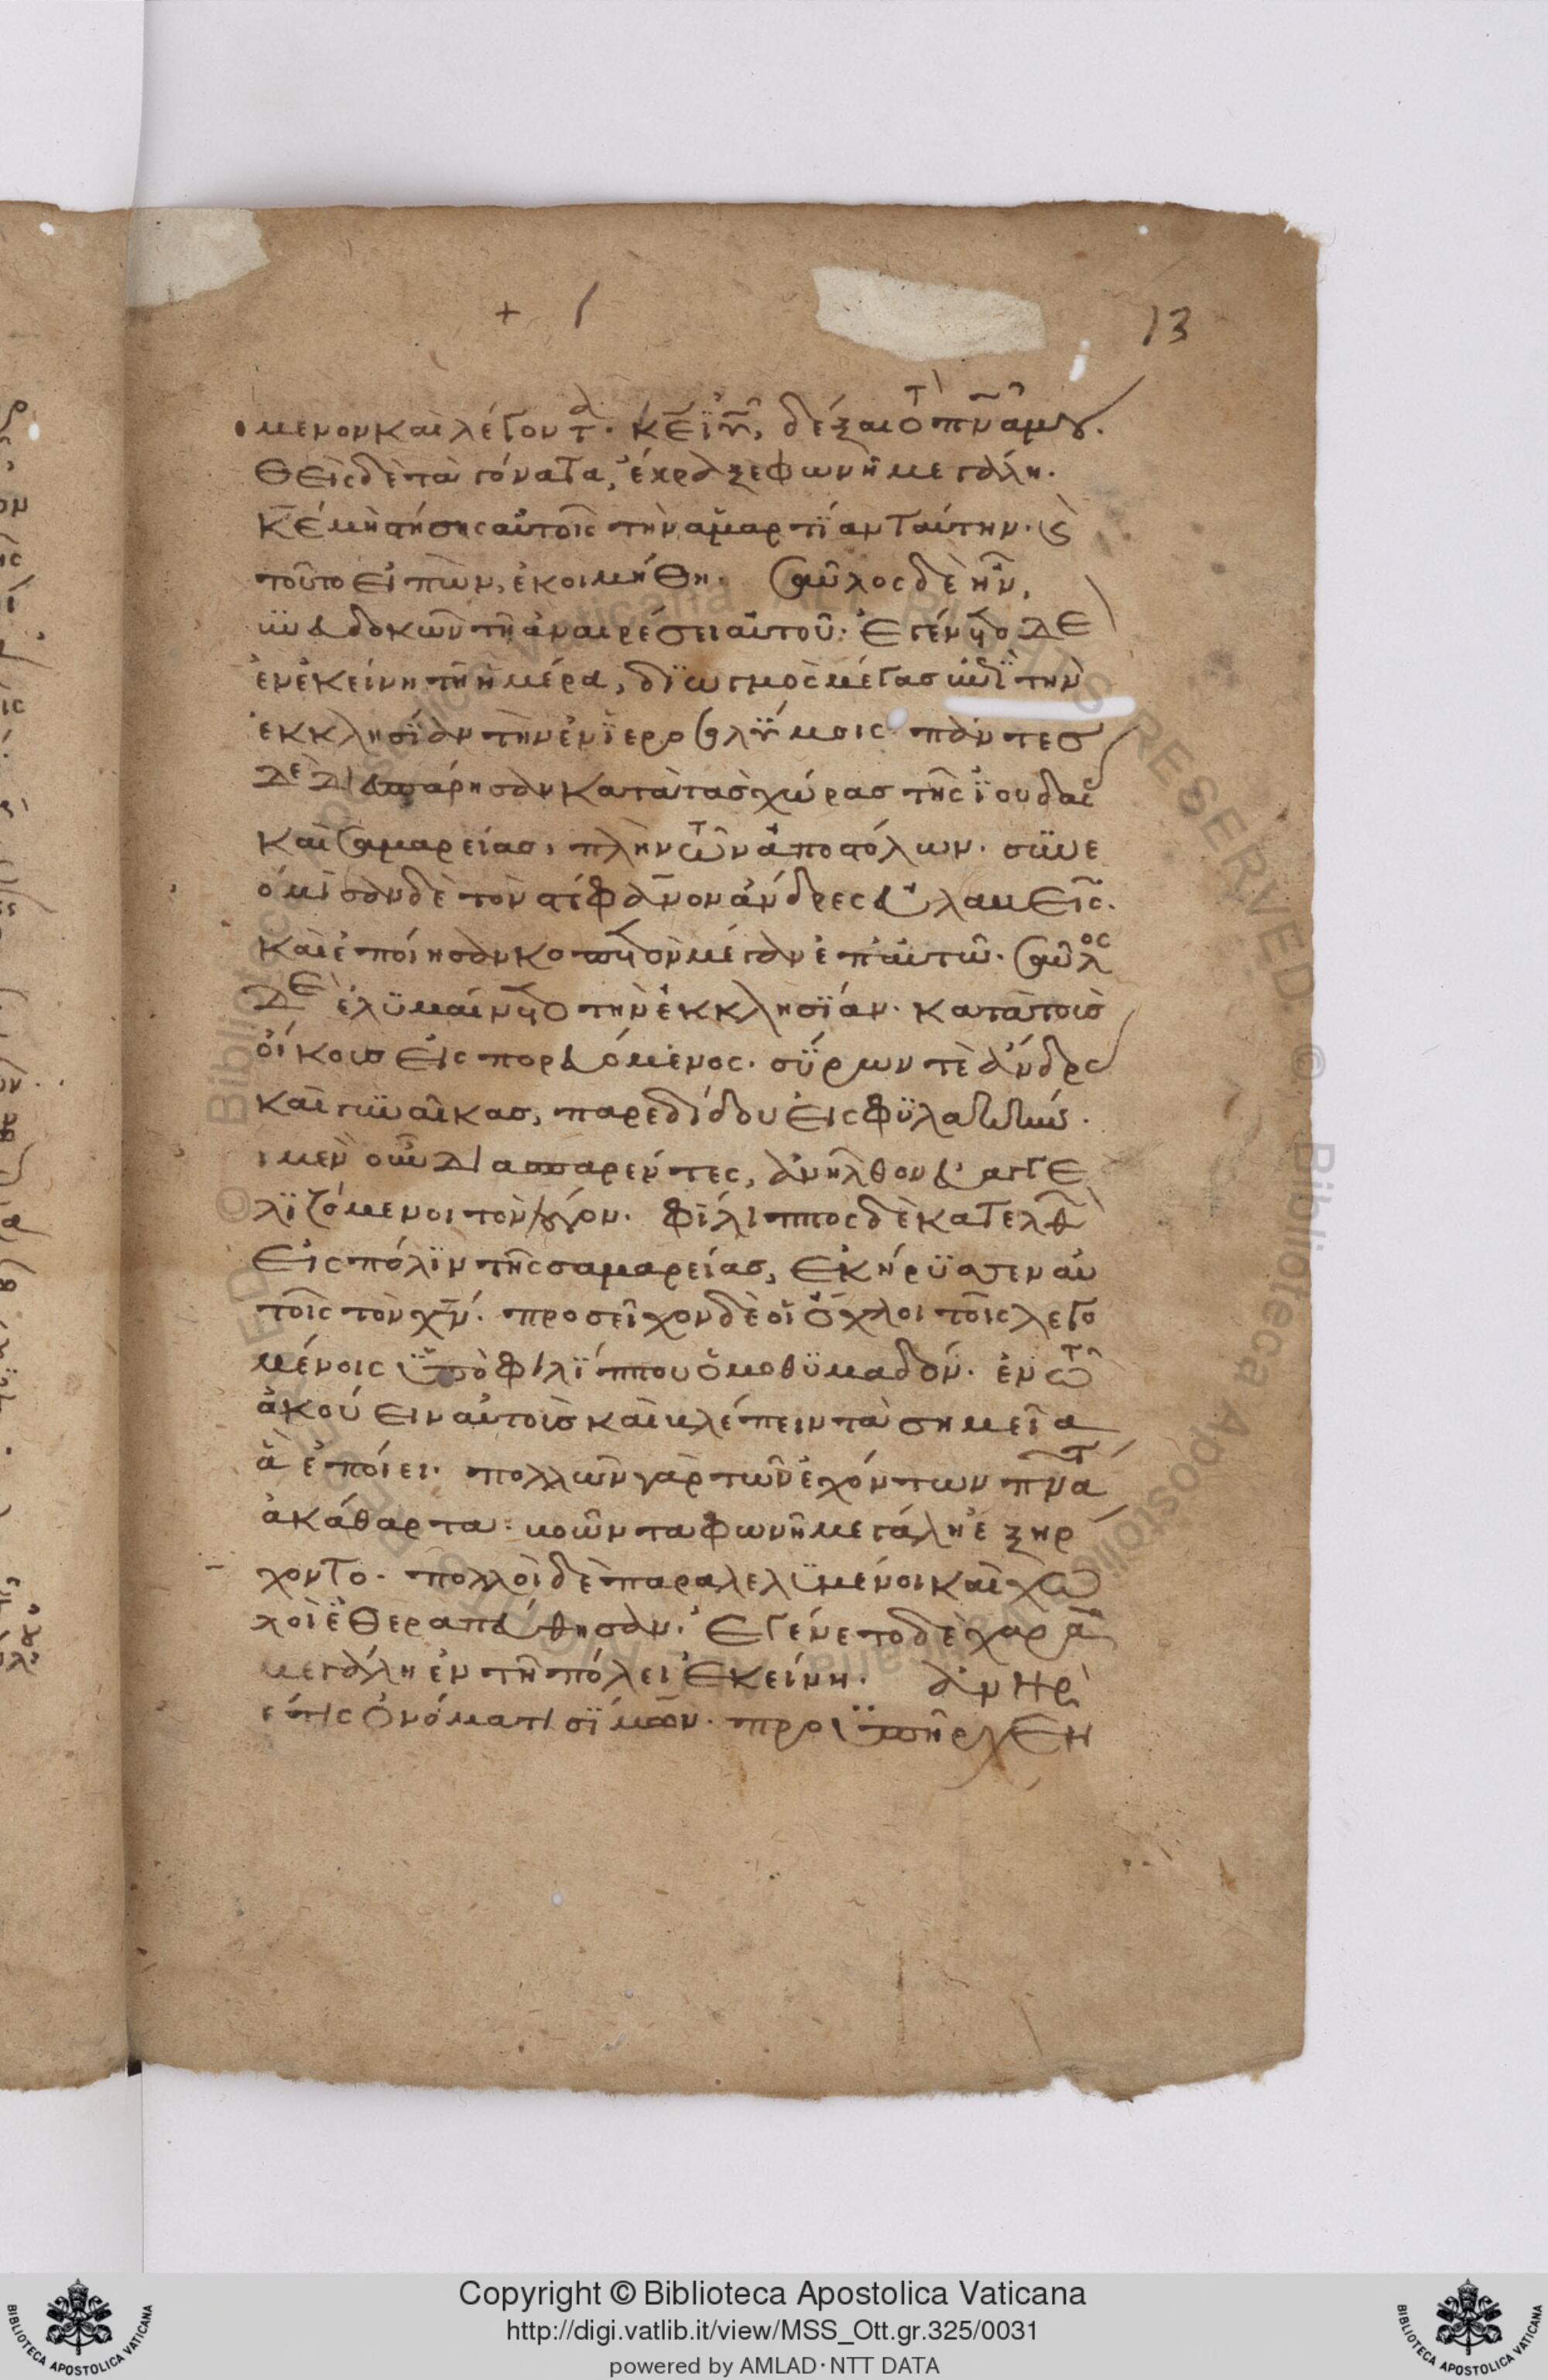 + 1
13
μενον καὶ λέγοντα. κ̅ε̅ ἰῦ, δέξαι τὸ πν̅α̅ μου.
θεὶς δὲ τὰ γόνατα, ἔκραξε φωνῆ μεγάλη.
κ̅ε̅ μὴ στήσης αὐτοῖς τὴν ἁμαρτΐαν ταύτην. καὶ
τοῦτο εἰπὼν, ἐκοιμήθη. Σαῦλος δὲ ἦν,
συνευδοκῶν τῆ ἀναιρέσει αὐτοῦ. Ἐγένετο δὲ
ἐν ἐκείνη τῆ ἡμέρα, δϊωγμὸς μέγας ἐπῒ τὴν
ἐκκλησΐαν τὴν ἐν ϊεροσολΰμοις πάντες
δὲ διεσπάρησαν κατὰ τὰς χώρας τῆς ϊουδαί
καὶ σαμαρείας, πλὴν τῶν ἀποστόλων. συνε
όμισαν δὲ τὸν στέφανον ἄνδρες εὐλαβεῖς.
καὶ ἐποίησαν κοπετὸν μέγαν ἐπ αὐτῶ. Σαῦλος
δὲ ἐλϋμαίνετο τὴν ἐκκλησΐαν. κατὰ τοὺς
οἴκους εἰσπορευόμενος. σΰρων τὲ ἄνδρς
καὶ γυναῖκας, παρεδίδου εἰς φϋλακήν.
ι μὲν οὖν διασπαρέντες, διῆλθον εὐαγγε
λϊζόμενοι τὸν λόγον. Φϊλιππος δὲ κατελθ
εἰς πόλϊν τῆς σαμαρείας, ἐκήρϋσσεν αὐ
τοῖς τὸν χ̅ν̅. προσεῖχον δὲ οἱ ὄχλοι τοῖς λεγο
μένοις ϋπὸ φιλΐππου ὁμοθϋμαδόν. ἐν τῶ
ἀκούειν αὐτοὺς καὶ βλέπειν τὰ σημεῖα
ἃ ἐποίει. πολλῶν γὰρ τῶν ἐχόντων πν̅τα
ἀκάθαρτα. βοῶντα φωνῆ μεγάλη ἐξηρ
χοντο. πολλοὶ δὲ παραλελϋμένοι καὶ χω
λοὶ ἐθεραπεύθησαν. Ἐγένετο δὲ χαρὰ
μεγάλη ἐν τῆ πόλει ἐκείνη. ἀνὴρ
έ τις ὀνόματι σΐμων. προϋπῆρχεν
Copyright © Biblioteca Apostolica Vaticana
http://digi.vatlib.it/view/MSS_Ott.gr.325/0031
powered by AMLAD·NTT DATA